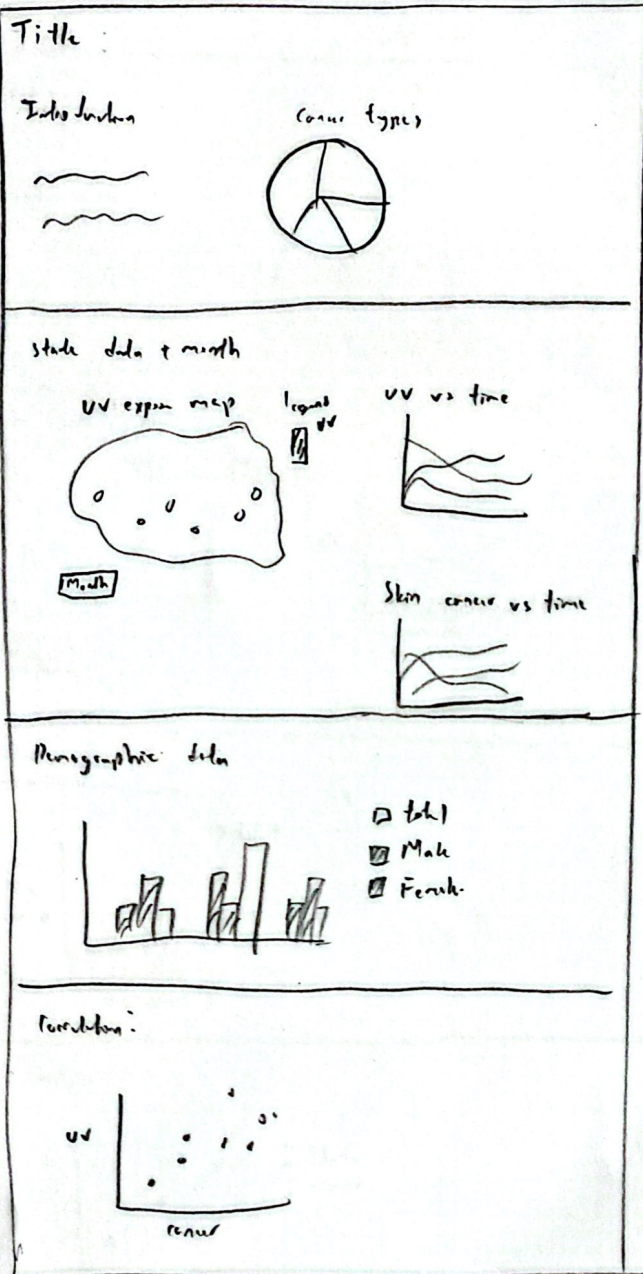 Title
Introduction
Cancer types
State data + month
UV expose map
Legend
UV
UV vs time
Month
Skin cancer vs time
Demographic data
total
Male
Female
Correlation:
UV
cancer